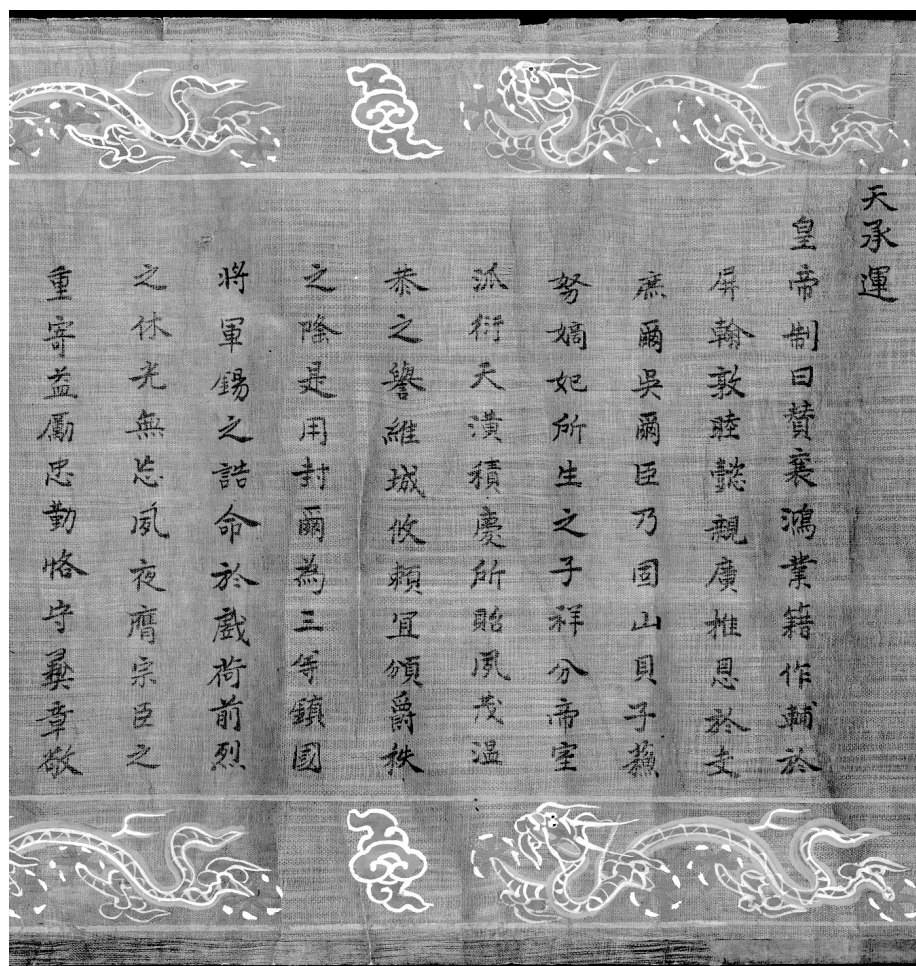 天承運
皇帝制曰贊襄鴻業籍作輔於
屏翰敦睦懿親廣推恩於支
庶爾吳爾臣乃固山貝子蘓
努嫡妃所生之子祥分帝室
派衍天潢積慶所貽夙茂溫
恭之譽維城攸賴宜頒爵秩
之隆是用封爾為三等鎮國
將軍錫之誥命於戲荷前烈
之休光無忘夙夜膺宗臣之
重寄益勵忠勤恪守彞章敬